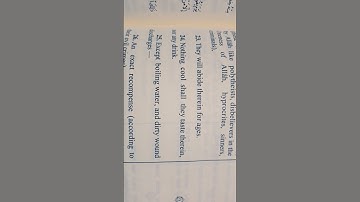 like polytheists, disbelievers in the
of Allâh, hypocrites, sinners,
23. They will abide therein for ages.
24. Nothing cool shall they taste therein,
nor any drink.
25. Except boiling water, and dirty wound
discharges —
26. An exact recompense (according to